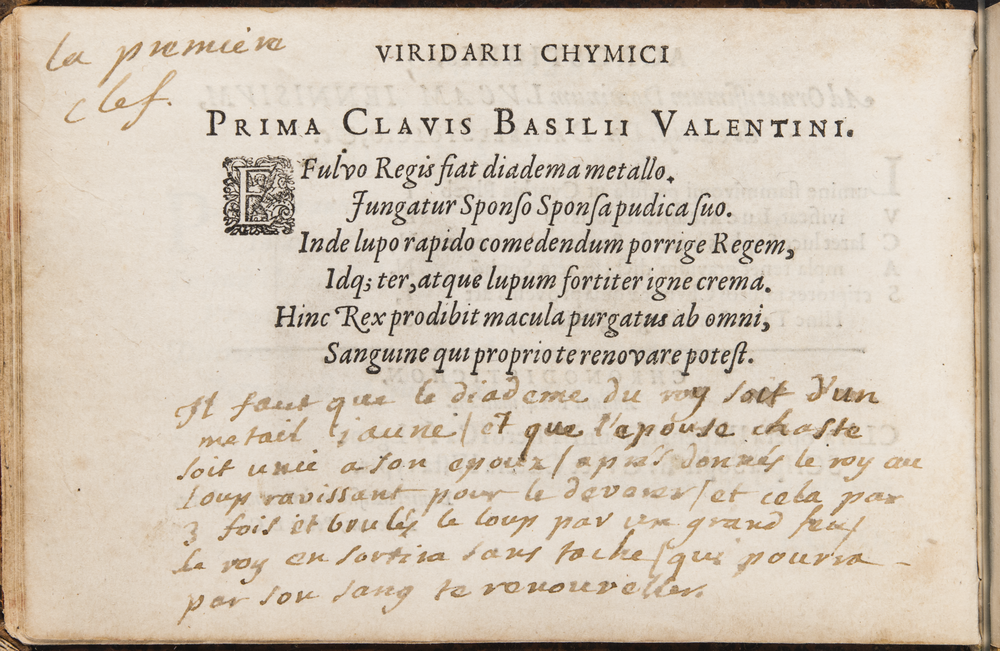 la premiere
clef.
VIRIDARII CHYMICI
PRIMA CLAVIS BASILII VALENTINI.
E Fulvo Regis fiat diadema metallo.
Jungatur Sponſo Sponſa pudica ſuo.
Inde lupo rapido comedendum porrige Regem,
Idq; ter, atque lupum fortiter igne crema.
Hinc Rex prodibit macula purgatus ab omni,
Sanguine qui proprio te renovare poteſt.
Il faut que le diademe du roy soit d'un
metail jaune / et que l'epouse chaste
soit unie a son epoux / après donnés le roy au
loup ravissant pour le devorer / et cela par
3 fois et brulés le loup par un grand feu /
le roy en sortira sans tache / qui pourra -
par son sang te renouveller.